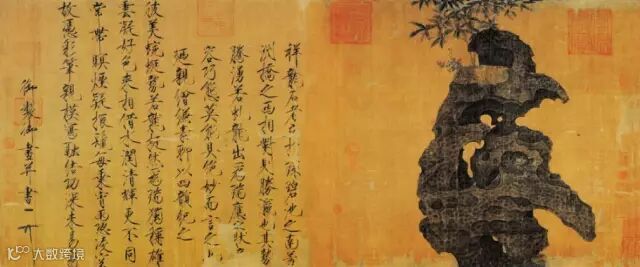 祥龍石者立於環碧池之南芳
洲橋之西相對則勝瀛也其勢
騰湧若虬龍出為瑞應之狀奇
容巧態莫能具絕妙而言之也
廼親繪縑素聊以四韻紀之
彼美蜿蜒勢若龍挺然為瑞獨稱雄
雲凝好色來相借水潤清輝更不同
常帶暝煙疑振鬣每乘宵雨恐凌
故憑彩筆親模寫融結功深未易
御製御畫并書
大数跨境